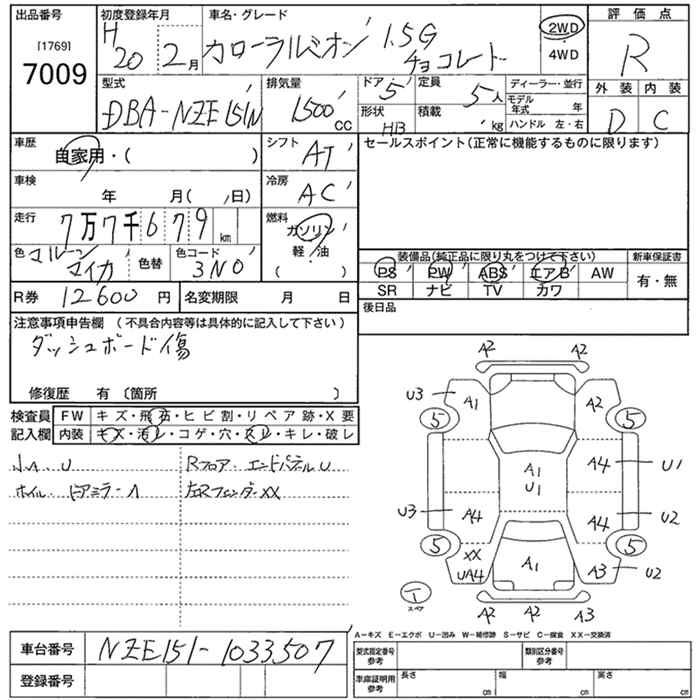 出品番号
[1769]
7009
初度登録年月
H
20 2月
車名・グレード
カローラルミオン 1.5G
チョコレート
2WD
4WD
評価点
R
外装 内装
D C
型式
DBA-NZE151N
排気量
1500cc
ドア 5
形状 HB
定員 5人
積載 kg
ディーラー・並行
モデル年式 年
ハンドル 左・右
車歴
自家用・( )
シフト
AT
セールスポイント(正常に機能するものに限ります)
車検
年 月( 日)
冷房
AC
走行
7万7千679km
燃料
ガソリン
軽・油
( )
色 マルーン
マイカ
色替
色コード
3N0
装備品(純正品に限り丸をつけて下さい)
PS PW ABS エアB AW
SR ナビ TV カワ
新車保証書
有・無
R券 12600円
名変期限 月 日
後日品
注意事項申告欄 (不具合内容等は具体的に記入して下さい)
ダッシュボード傷
修復歴 有 〔箇所 〕
検査員
記入欄
FW キズ・飛石・ヒビ割・リペア跡・X要
内装 キズ・汚レ・コゲ・穴・スレ・キレ・破レ
小A.U
ホイル.ドアミラーA
Rフロア.エンドパネルU
左RフェンダーXX
A2 A2
U3 A1 A2
5 5
A1
U1
A4 U1
U3 A4 A4 U2
5 5
XX
UA4 A1 A3 U2
T
スペア
A2 A2 A3
A-キズ E-エクボ U-凹み W-補修跡 S-サビ C-腐食 XX-交換済
車台番号 NZE151-1033507
登録番号
型式指定番号
参考
類別区分番号
参考
車庫証明用
参考
長さ cm
幅 cm
高さ cm